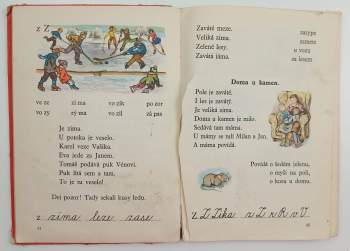 z Z
ve ze zi ma ve zik po zor
vo zy zý ma vo zil zá pas
Je zima.
U potoka je veselo.
Karel veze Vašíka.
Eva jede za Janem.
Tomáš podává puk Vénovi.
Puk lítá sem a tam.
To je tu veselo!
Dej pozor! Tady sekali kusy ledu.
z zima leze zase
44
Zaváté meze.
Veliká zima.
Zelené lesy.
Zavátá jáma.
zasype
zameze
u vozu
za lesem
Doma u kamen.
Pole je zaváté.
I les je zavátý.
Je veliká zima.
Doma u kamen je milo.
Sedává tam máma.
U mámy se tulí Milan a Jan.
A máma povídá.
Povídá o šedém jelenu,
o myši na poli,
o kosu u domu.
z Z Zika z Z r R v V
45